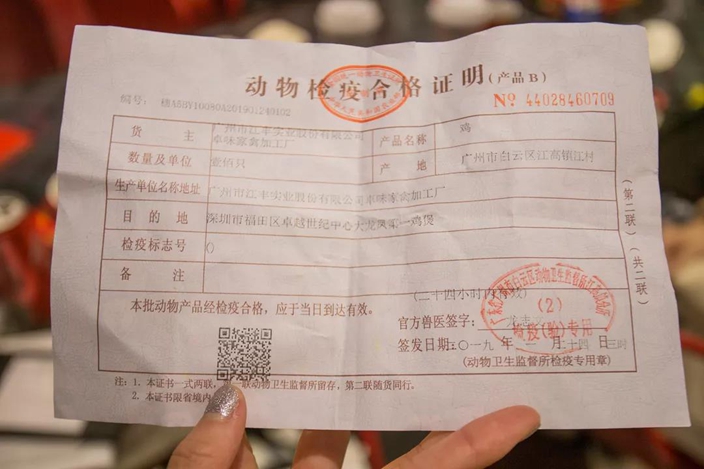 动物检疫合格证明(产品B)
编号: 穗A5BY16090A201901240102
№ 44028460709
货 主 广州市江丰实业股份有限公司卓味家禽加工厂 产品名称 鸡
数量及单位 壹佰只 产 地 广州市白云区江高镇江村
生产单位名称地址 广州市江丰实业股份有限公司卓味家禽加工厂
目 的 地 深圳市福田区卓越世纪中心大龙凤第一鸡煲
检疫标志号 ()
备 注
(第二联)(共二联)
本批动物产品经检疫合格,应于当日到达有效。
(二十四小时内有效)
官方兽医签字:
签发日期:二〇一九 年 一 月 二十四 日 三时
(动物卫生监督所检疫专用章)
(2)
检疫(验)专用
注: 1. 本证书一式两联,第一联动物卫生监督所留存,第二联随货同行。
2. 本证书限省境内